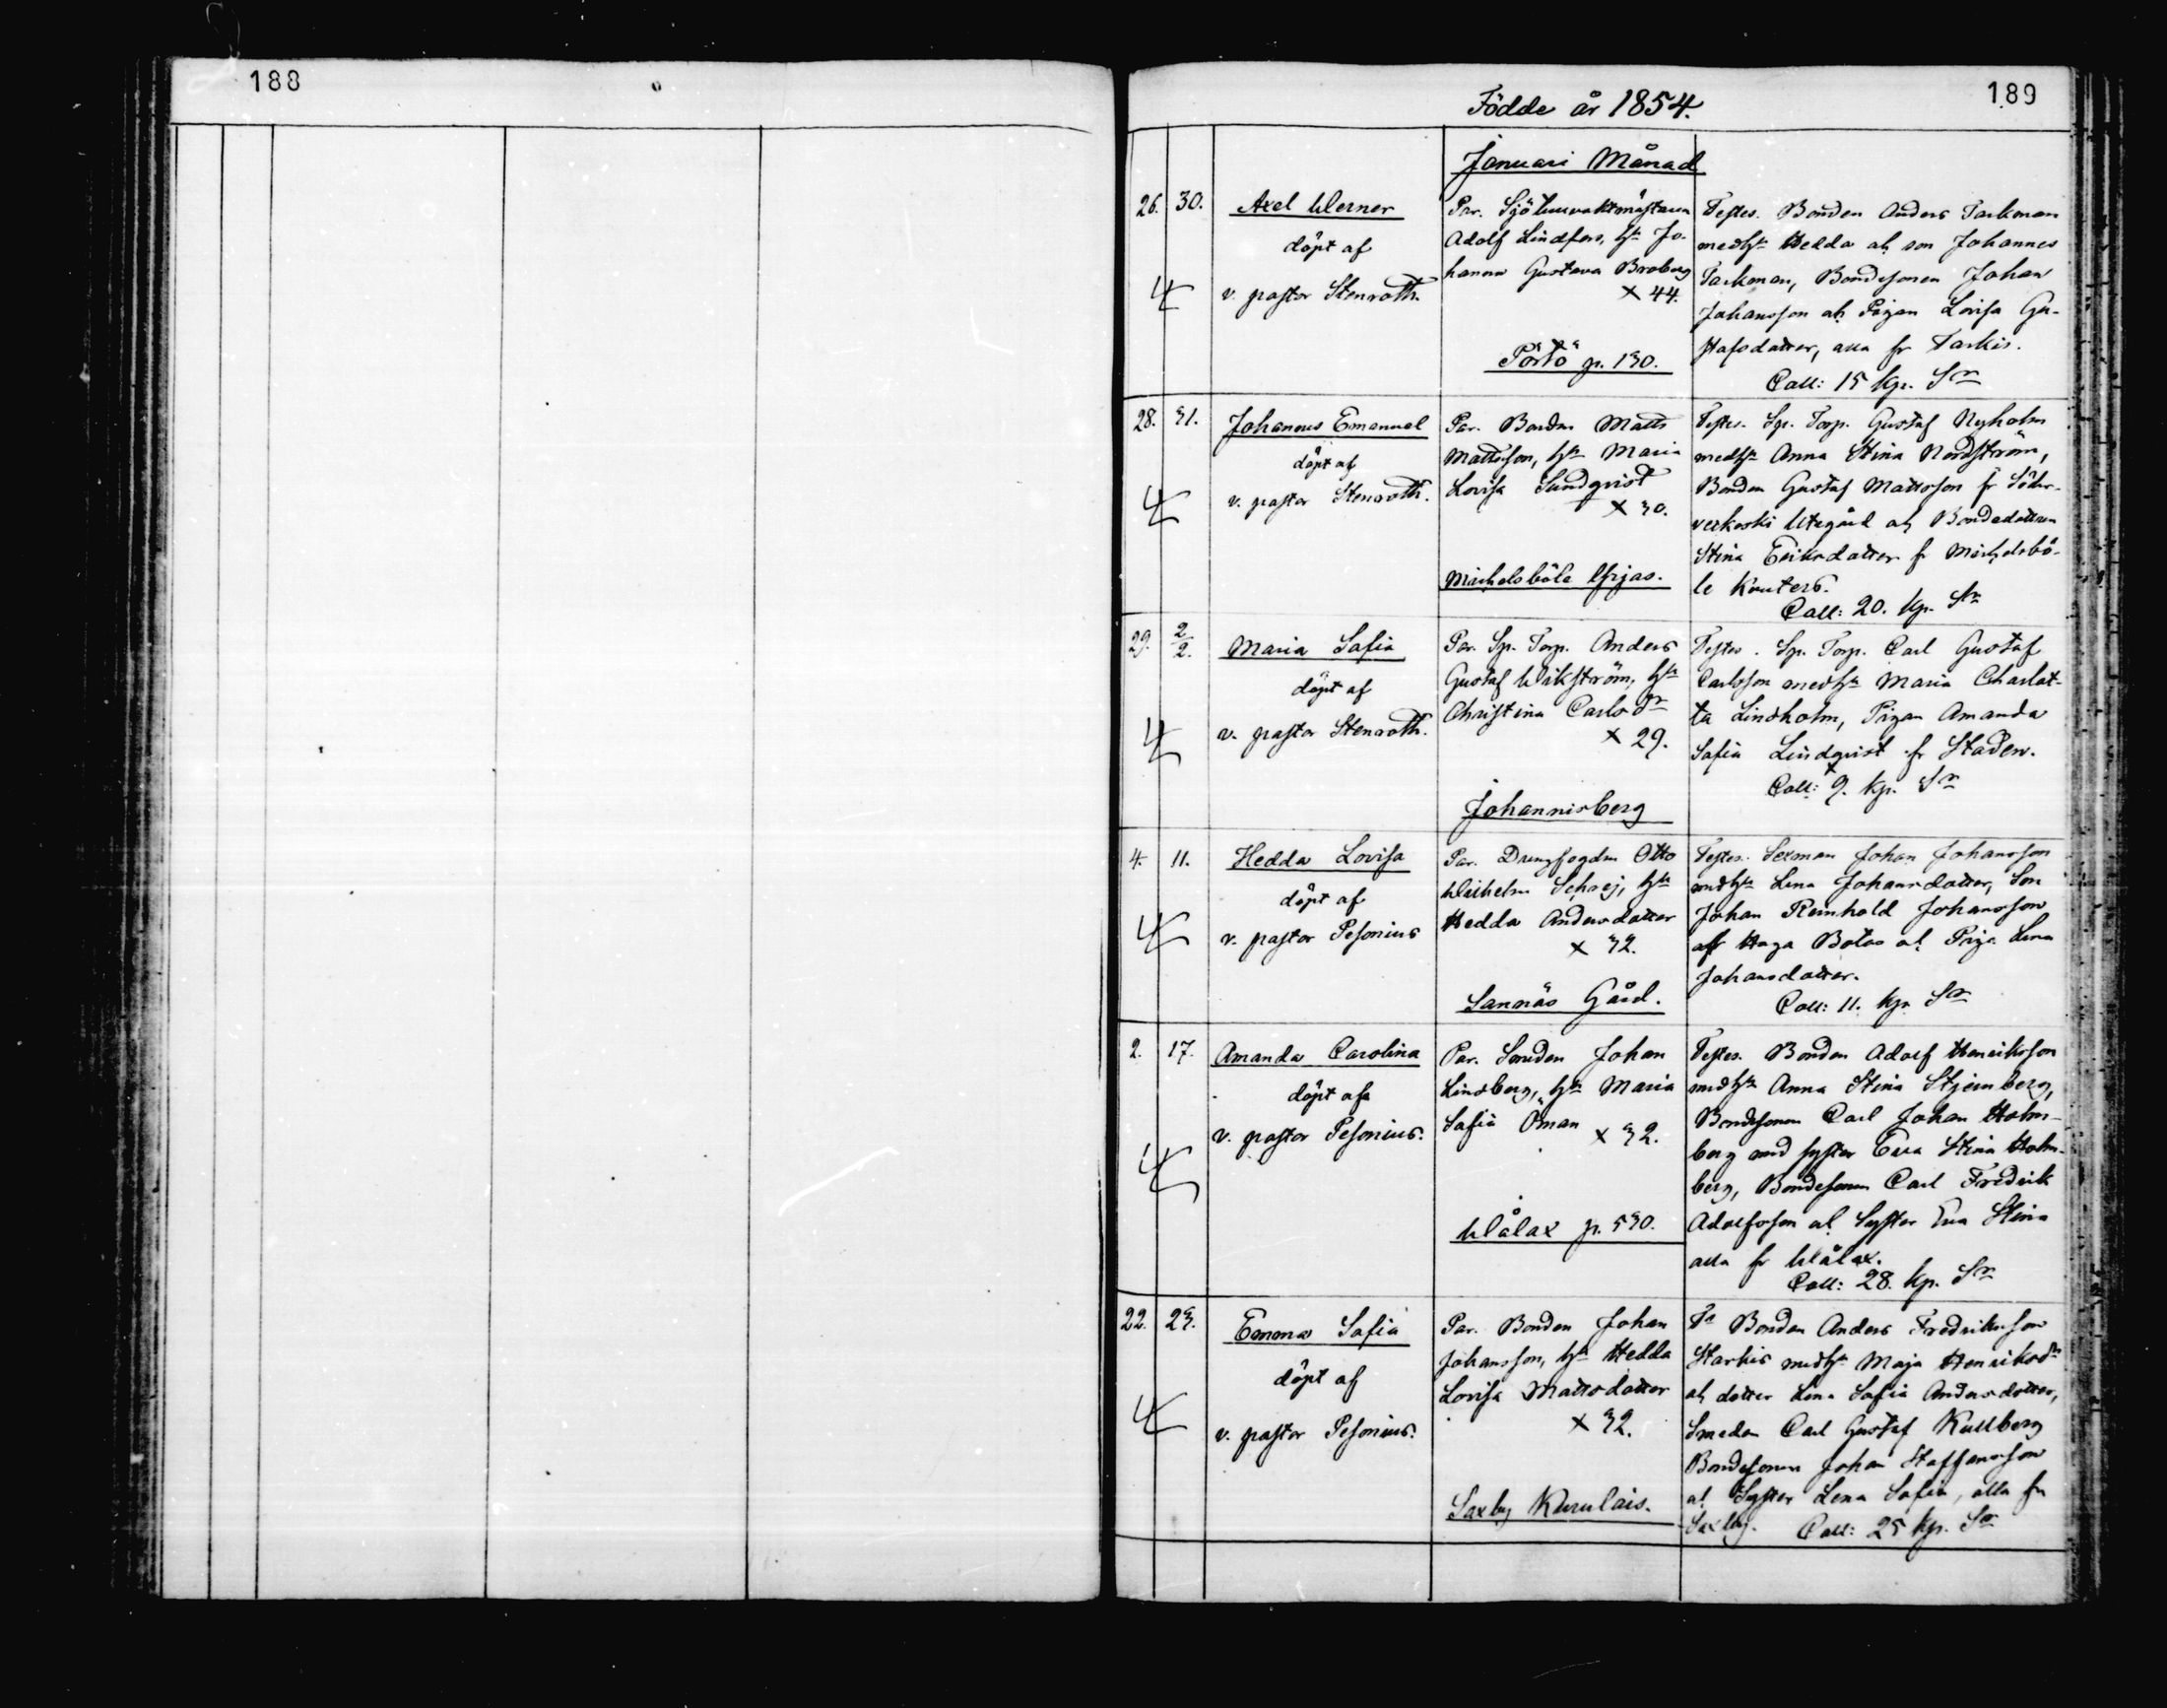 188
189
Födde år 1854.
Januari Månad
26. 30. Axel Werner
döpt af
v. pastor Stenroth.
Par. Sjötullvaktmästaren
Adolf Lindfors, h:n Jo-
hanna Gustava Broberg
× 44.
Pörtö p. 130.
Testes. Bonden Anders Tarkman
med h:n Hedda o. son Johannes
Tarkman, Bondesonen Johan
Johansson o. Pigan Lovisa Gu-
stafsdatter, alla fr Tarkis.
Coll: 15 kp. S:r
28. 31. Johannes Emanuel
döpt af
v. pastor Stenroth.
Par. Bonden Matts
Mattsson, h:n Maria
Lovisa Sundqvist
× 30.
Michelsböle
Testes. Sp. Torp. Gustaf Nyholm
med h:n Anna Stina Nordström,
Bonden Gustaf Mattsson fr Söder-
veckoski Utegård o. Bondedottren
Stina Eriksdatter fr Michelsbö-
le Knuters.
Coll: 20. kp. S:r
29. 2/2. Maria Safia
döpt af
v. pastor Stenroth.
Par. Sp. Torp. Anders
Gustaf Wikström, h:n
Christina Carlsd:r
× 29.
Johannisberg
Testes. Sp. Torp. Carl Gustaf
Carlsson med h:n Maria Charlot-
ta Lindholm, Pigan Amanda
Safia Lindqvist fr Staden.
Coll: 9. kp. S:r
4. 11. Hedda Lovisa
döpt af
v. pastor Pesonius
Par. Drengfogden Otto
Wilhelm h:n
Hedda Andersdatter
× 32.
Sannäs Gård.
Testes. Sexman Johan Johansson
med h:n Lena Johansdatter, Son
Johan Reinhold Johansson
Haga Botas o. Piga Lena
Johansdatter.
Coll: 11. kp. S:r
2. 17. Amanda Carolina
döpt af
v. pastor Pesonius.
Par. Smeden Johan
Lindberg, h:n Maria
Safia Öman × 32.
Wålax p. 530.
Testes. Bonden Adolf Henriksson
med h:n Anna Stina Stjernberg,
Bondesonen Carl Johan Holm-
berg med syster Eva Stina Holm-
berg, Bondesonen Carl Fredrik
Adolfsson o. Syster Eva Stina
alla fr Wålax.
Coll: 28. kp. S:r
22. 23. Emma Safia
döpt af
v. pastor Pesonius.
Par. Bonden Johan
Johansson, h:n Hedda
Lovisa Mattsdatter
× 32.
Saxby Kurulais.
T:s Bonden Anders Fredriksson
Starkis med h:n Maja Henriksd:r
o. dotter Lena Safia Andersdotter,
Smeden Carl Gustaf Kullberg
Bondesonen Johan Staffansson
o. Syster Lena Safia, alla fr
Saxby. Coll: 25 kp. S:r